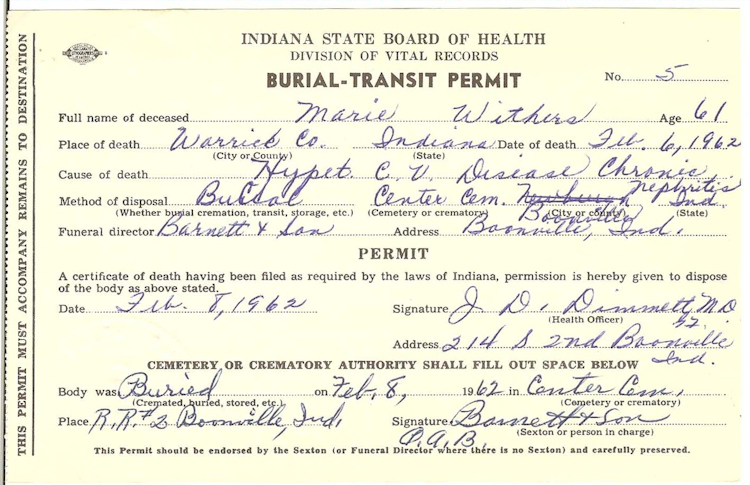 INDIANA STATE BOARD OF HEALTH
DIVISION OF VITAL RECORDS
BURIAL-TRANSIT PERMIT
No. 5
Full name of deceased Marie Withers Age 61
Place of death Warrick Co. Indiana Date of death Feb. 6, 1962
(City or County) (State)
Cause of death Hypet. C. V. Disease Chronic
Nephritis
Method of disposal Burial Center Cem. Newburgh Ind.
Boonville
(Whether burial cremation, transit, storage, etc.) (Cemetery or crematory) (City or county) (State)
Funeral director Barnett & Son Address Boonville, Ind.
PERMIT
A certificate of death having been filed as required by the laws of Indiana, permission is hereby given to dispose
of the body as above stated.
Date Feb. 8, 1962 Signature J. D. Dimmett, M.D.
(Health Officer)
Address 214 S 2nd Boonville
Ind.
CEMETERY OR CREMATORY AUTHORITY SHALL FILL OUT SPACE BELOW
Body was Buried on Feb. 8, 1962 in Center Cem.
(Cremated, buried, stored, etc.) (Cemetery or crematory)
Place R.R.#2 Boonville, Ind. Signature Barnett & Son
(Sexton or person in charge)
P.A.B.
This Permit should be endorsed by the Sexton (or Funeral Director where there is no Sexton) and carefully preserved.
THIS PERMIT MUST ACCOMPANY REMAINS TO DESTINATION